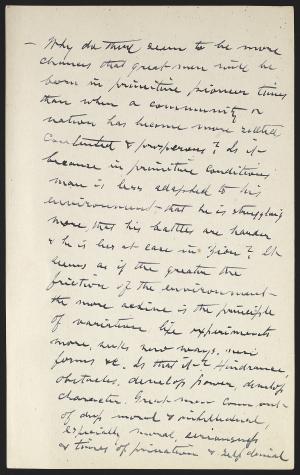 — Why do there seem to be more
chances that great men will be
born in primitive pioneer times
than when a community or
nation has become more settled
contented & prosperous? Is it
because in primitive conditions
man is less adapted to his
environment — that he is struggling
more, that his battles are harder
& he is less at ease in Zion? It
seems as if the greater the
friction of the environment
the more active is the principle
of variation, life experiments
more, seeks new ways, new
forms &c. Is that it? Hindrances,
obstacles, develop power, develop
character. Great men come out
of deep moral & intellectual,
especially moral, seriousness
& times of privation & self denial